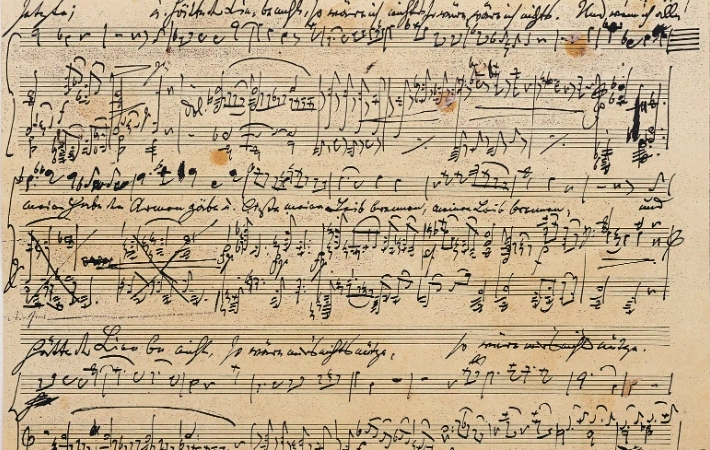 setzte; u. hätte d. Liebe nicht, so wäre ich nichts, so wäre, wäre ich nichts. Und wenn ich alle
dol.
meine Habe den Armen gäbe u. ließe meinen Leib brennen, meinen Leib brennen, und
hätte d. Liebe nicht, so wäre mir's nichts nütze, so wäre mir's nichts nütze.